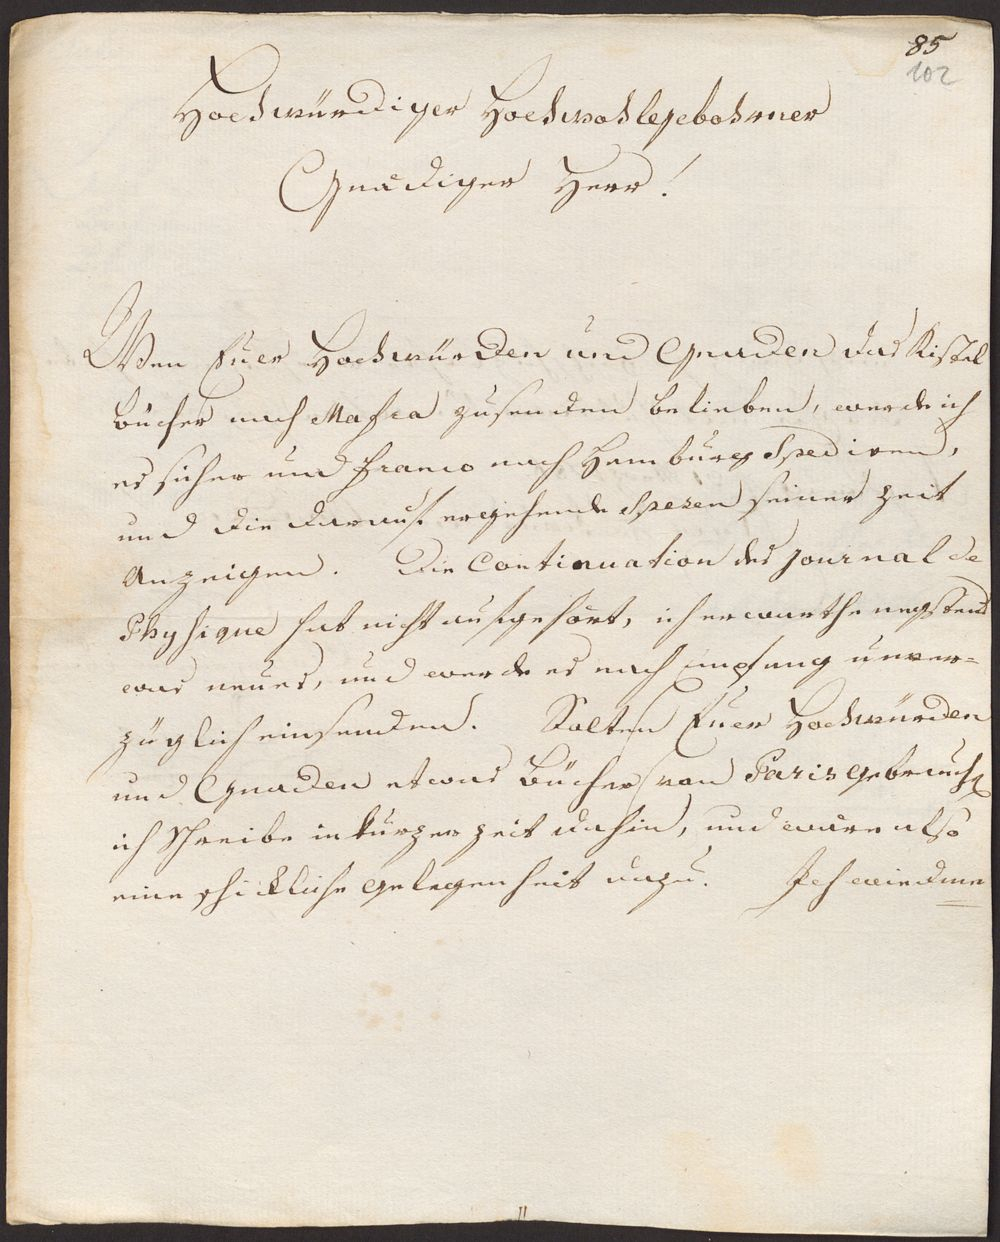 85
102
Hochwürdiger Hochwohlgebohrner
Gnädiger Herr!
Wen Euer Hochwürden und Gnaden das Kistel
bücher nach Mafra zusenden belieben, werde ich
es sicher und franco nach Hamburg Spediren,
und die darauf ergehende Spesen seiner zeit
Anzeigen. Die Continuation des Journal de
Physique hat nicht aufgehört, ich erwarthe negstens
was neues, und werde es nach Empfang unver=
züglich einsenden. Solten Euer Hochwürden
und Gnaden etwas bücher von Paris gebrauchen
ich Schreibe in kurzer zeit dahin, und wäre also
eine schickliche gelegenheit dazu. Ich wiedme